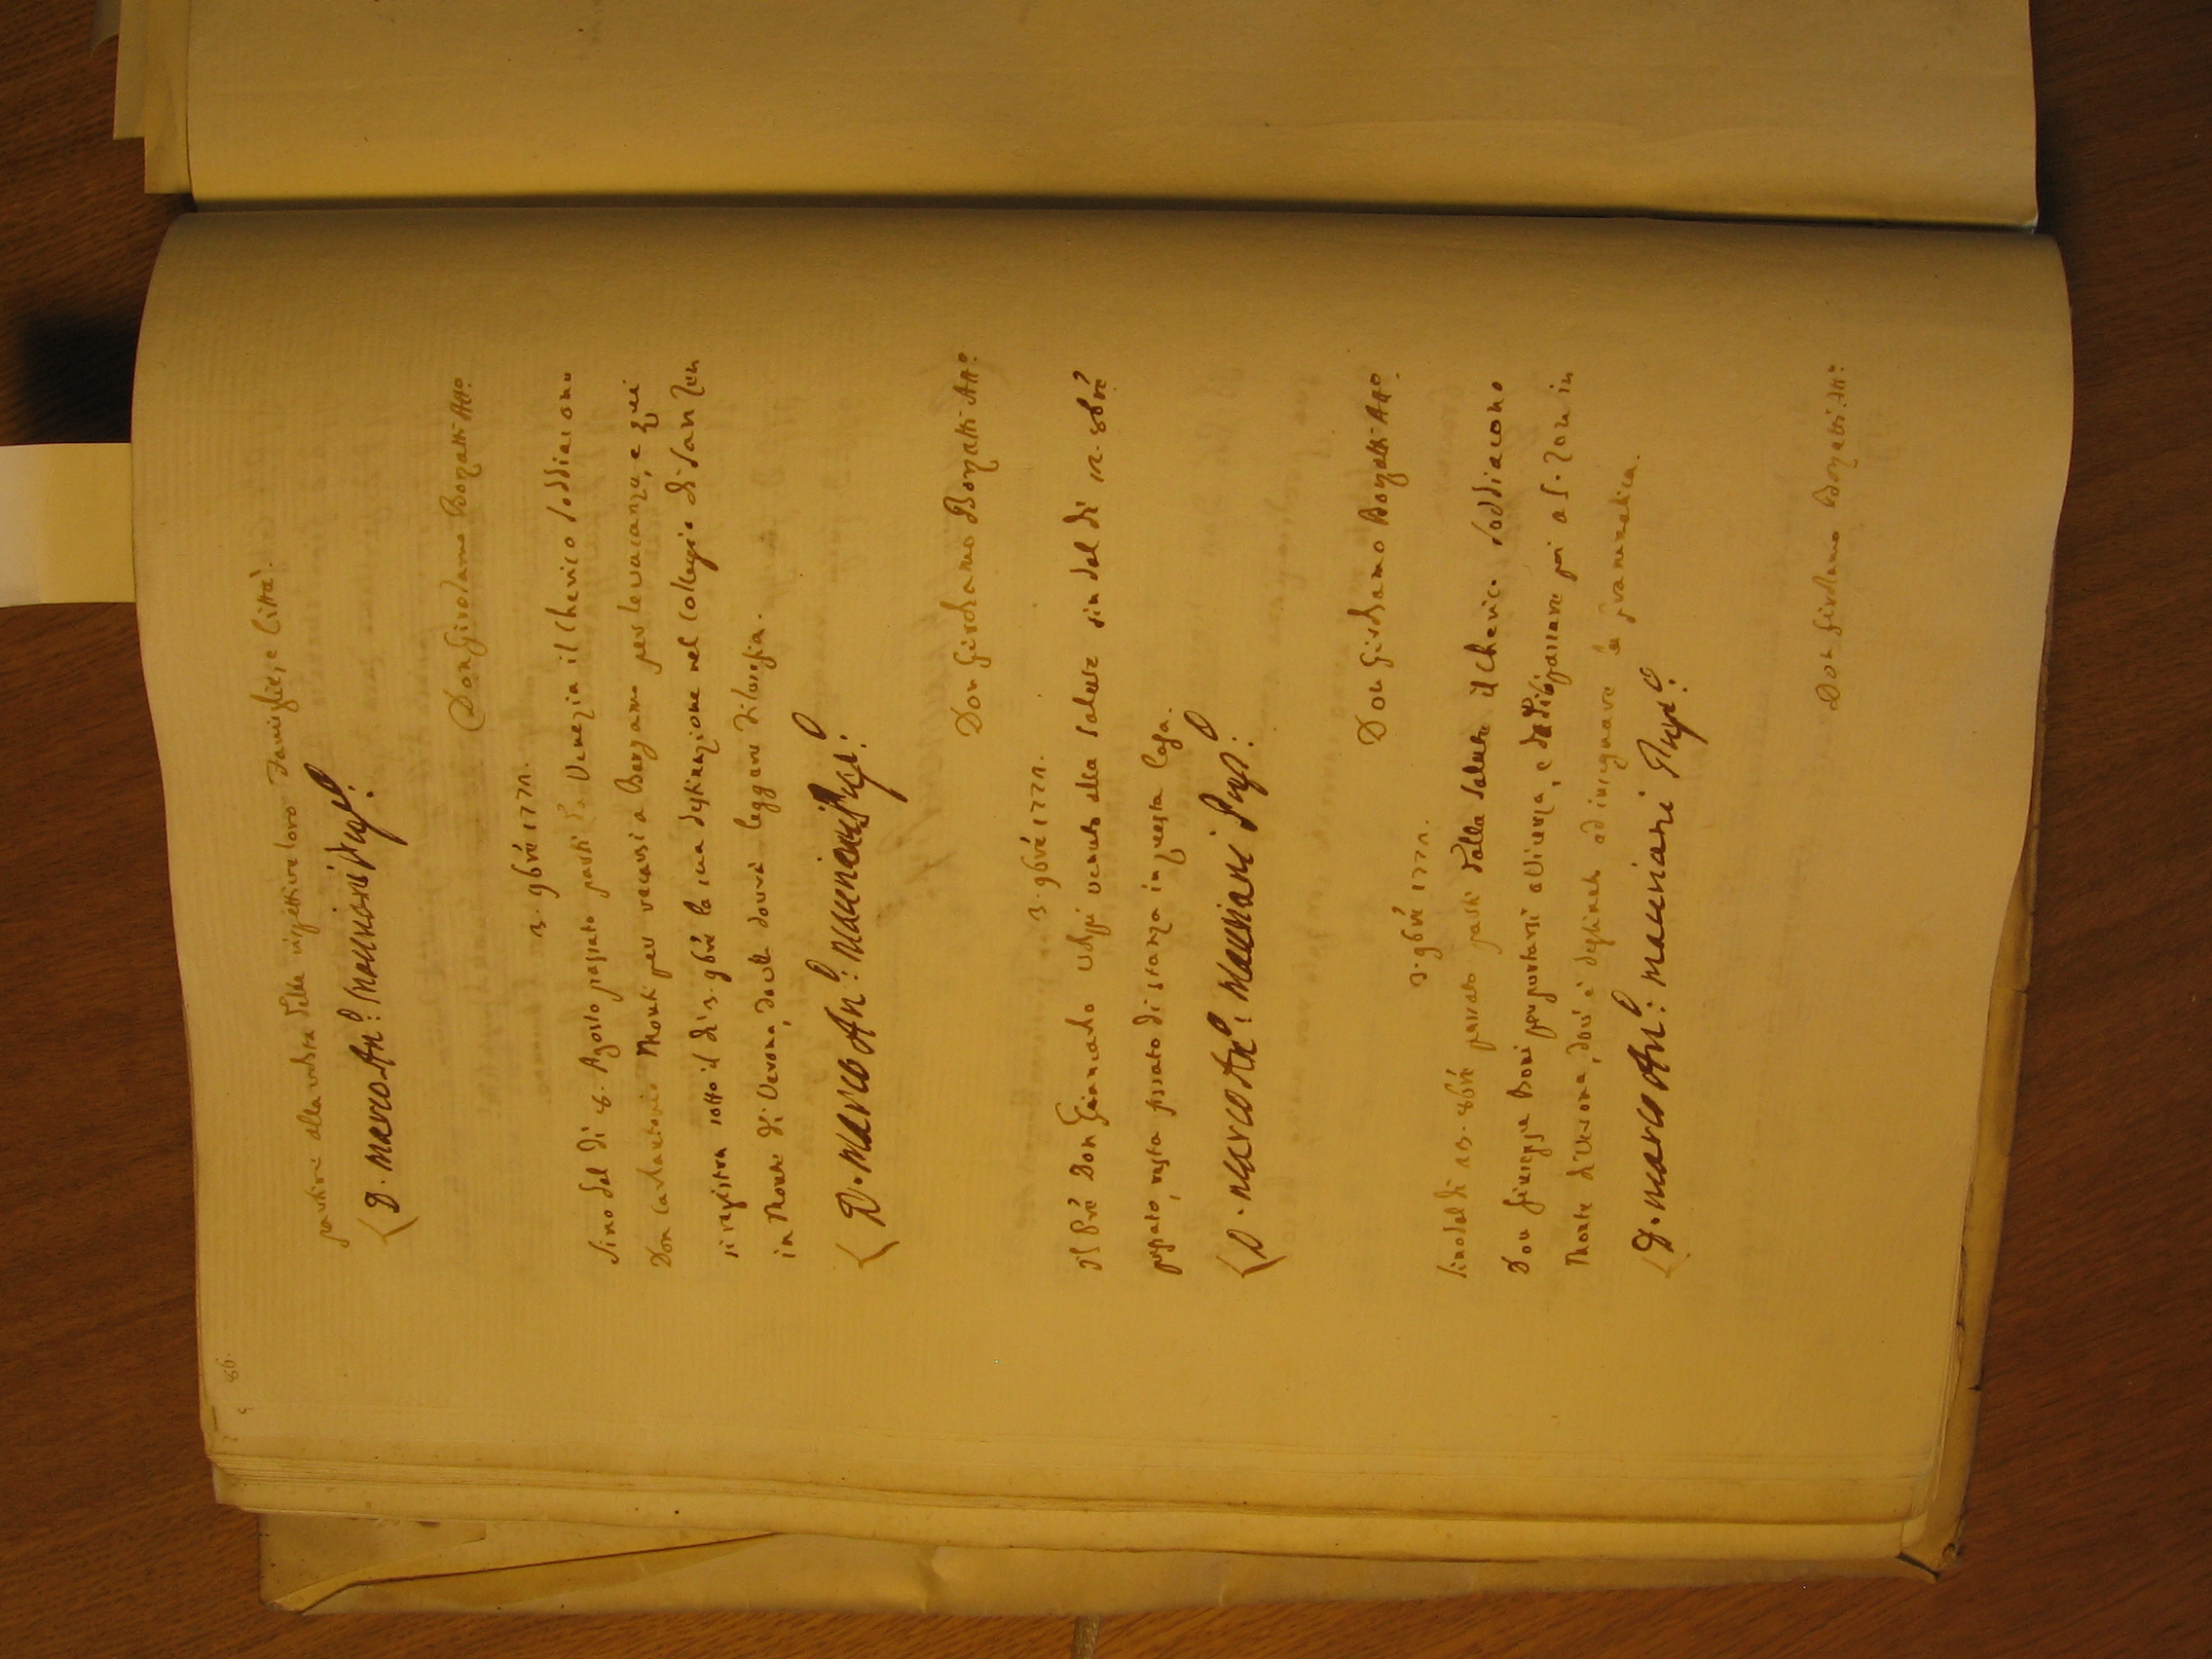 86.
partirà alla volta delle rispettive loro Famiglie, e Città.
D. Marco Ant.o: Mauriani Prep.o:
Don Girolamo Bonzatti Att.o
3. 9bre 1772.
Sino dal dì 8. Agosto passato partì da Venezia il Cherico soddiacono
Don Carlantonio Monti per recarsi a Bergamo per le vacanze, e qui
si registra sotto il dì 3. 9bre la sua destinazione nel Collegio di San Zen
in Monte di Verona, dove dovrà leggere Filosofia.
D. Marco Ant.o: Mauriani Prep.o:
Don Girolamo Bonzatti Att.o
3. 9bre 1772.
Il Pre Don Giancarlo venuto alla Salute sin dal dì 12. 8bre
passato, resta fissato di stanza in questa Casa.
D. Marco Ant.o: Mauriani Prep.o:
Don Girolamo Bonzatti Att.o
3. 9bre 1772.
Sino dal dì 13. 8bre passato partì dalla Salute il Cherico soddiacono
Don Giuseppe Boni per portarsi a Vicenza, e di lì passare poi a S. Zen in
Monte di Verona, dov' è destinato ad insegnare la grammatica.
D. Marco Ant.o: Mauriani Prep.o:
Don Girolamo Bonzatti Att.o